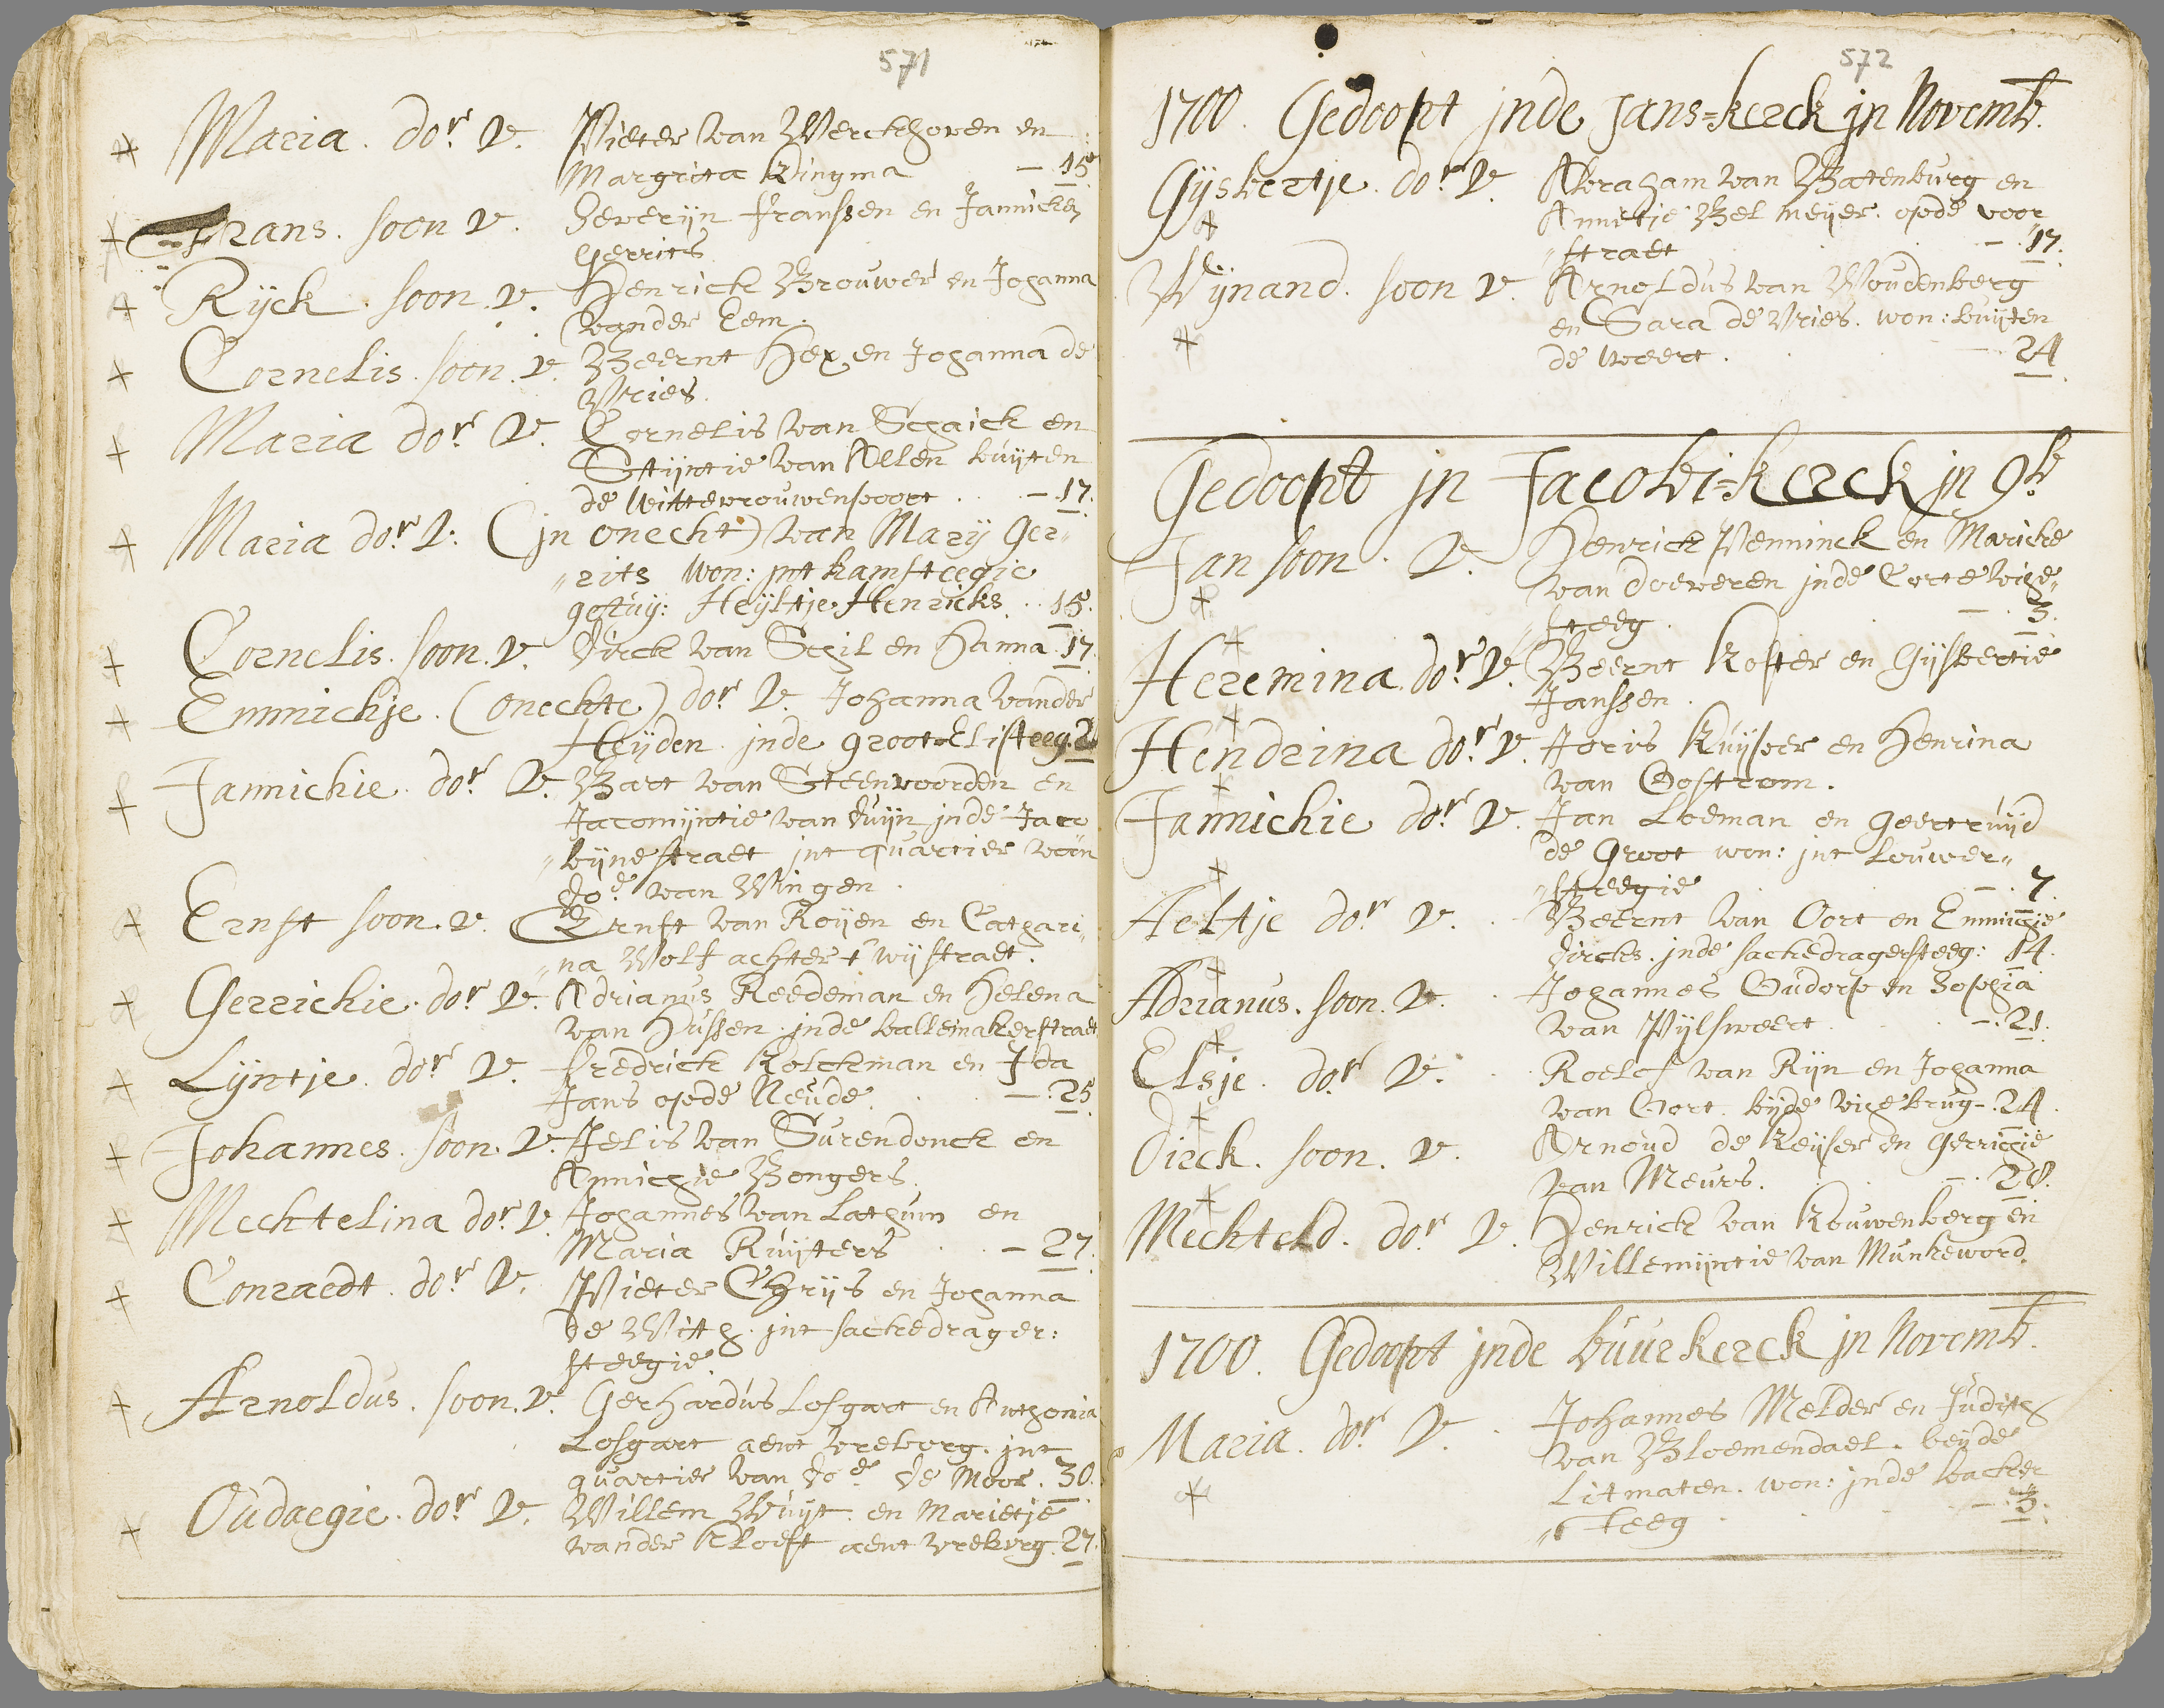 571
Maria. do.r v. Pieter van Werckhoven en
Margrita Kingma - 15
Frans. soon v. Severijn Franssen en Jannicken
Gerrits
Rijck. soon. v. Henrick Brouwer en Johanna
vander Eem.
Cornelis. soon. v. Beernt Hex en Johanna de
Vries.
Maria do.r v. Cornelis van Schaick en
Stijntie van Aelen buijten
de Wittevrouwenpoort. - 17.
Maria do.r v. (jn onecht) van Mary Ger„
„rits won: jnt kamsteegie
getuy: Heyltje Henricks.. 15.
Cornelis. soon. v. Dirck van Schil en Hanna. 17.
Emmichje. (onechte) do.r v. Johanna vander
Heyden. jnde groot Elisteeg. 2
Jannichie. do.r v. Bart van Steenvoorden en
Jacomijntie van Duijn jnde Jaco
„bijnestraet jnt quartier van
do.e van Wingen.
Ernst soon. v. Ernst van Royen en Cathari„
„na Wolf achter t wystraet.
Gerrichie. do.r v. Adrianus Reedeman en Helena
van Hussen. jnde ballemakerstraet
Lyntje. do.r v. Fredrick Kolckman en Ida
Jans opde Neude. - 25
Johannes. soon. v. Jelis van Surendonck en
Annichie Bongers.
Mechtelina do.r v. Johannes van Lathum en
Maria Ruijters - 27.
Conraedt. do.r v. Pieter Ghrijs en Johanna
de With. jnt sackedrager:
steegie
Arnoldus. soon. v. Gerhardus Losgart en Anthonia
Losgart aent vreborg. jnt
quartier van do.e De Moor. 30.
Oudaegie. do.r v. Willem Wuijt. en Marietje
vander Kloeft aent vreburg. 27.
572
1700. Gedoopt jnde Jans=kerck jn Novemb.
Gijsbertje. do.r v. Abraham van Batenburg en
Annetje Bel meijer. opde voor„
„straet - 17.
Wijnand. soon v. Arnoldus van Woudenberg
en Sara de Vries. won: buijten
de weert. - 24
Gedoopt jn Jacobi=kerck jn 9b
Jan soon. v. Henrick Penninck en Maricke
van doeveren jnde Corte vige„
„steeg. - 3.
Heremina. do.r v. Beernt Koster en Gijsbertie
Janssen.
Hendrina do.r v. Joris Kuijper en Henrina
van Oostrom.
Jannichie do.r v. Jan Loeman en geertruijd
de Groot won: jnt Louwer„
„steegie - 7.
Aeltje do.r v. Beernt van Oort en Emmichie
Dircks. jnde sackedragersteeg: 14.
Adrianus. soon. v. Johannes Oudorp en Sophia
van Pijlsweert. - 21.
Elsje. do.r v. Roelof van Rijn en Johanna
van Oort. bijde vigebrug -. 24.
Dirck. soon. v. Arnoud de Keijser en gerrichie
van Meurs. - 28.
Mechteld. do.r v. Henrick van Kouwenberg en
Willemijntie van Munkeword.
1700. Gedoopt jnde buurkerck jn Novemb.
Maria. do.r v. Johannes Melder en Judith
van Bloemendael. beijde
Litmaten. won: jnde backer
„steeg - 3.